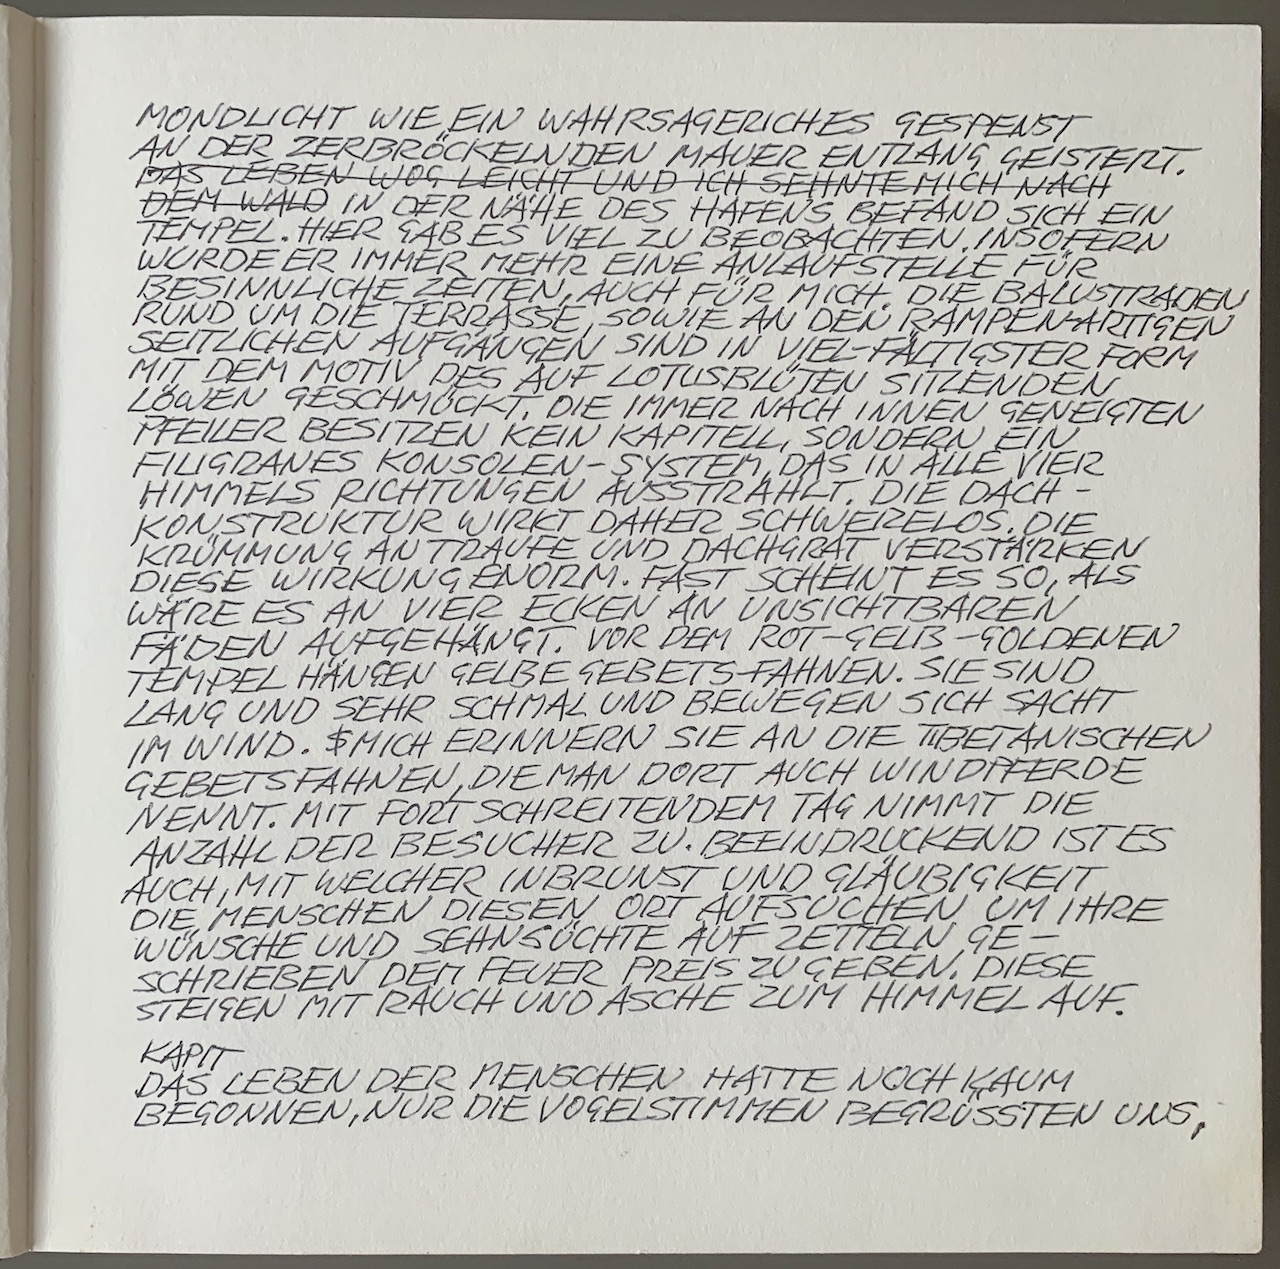 MONDLICHT WIE EIN WAHRSAGERICHES GESPENST
AN DER ZERBRÖCKELNDEN MAUER ENTLANG GEISTERT.
DAS LEBEN WOG LEICHT UND ICH SEHNTE MICH NACH
DEM WALD IN DER NÄHE DES HAFENS BEFAND SICH EIN
TEMPEL. HIER GAB ES VIEL ZU BEOBACHTEN. INSOFERN
WURDE ER IMMER MEHR EINE ANLAUFSTELLE FÜR
BESINNLICHE ZEITEN, AUCH FÜR MICH. DIE BALUSTRADEN
RUND UM DIE TERRASSE, SOWIE AN DEN RAMPEN-ARTIGEN
SEITLICHEN AUFGÄNGEN SIND IN VIEL-FÄLTIGSTER FORM
MIT DEM MOTIV DES AUF LOTUSBLÜTEN SITZENDEN
LÖWEN GESCHMÜCKT. DIE IMMER NACH INNEN GENEIGTEN
PFEILER BESITZEN KEIN KAPITELL, SONDERN EIN
FILIGRANES KONSOLEN-SYSTEM, DAS IN ALLE VIER
HIMMELS RICHTUNGEN AUSSTRAHLT. DIE DACH-
KONSTRUKTUR WIRKT DAHER SCHWERELOS. DIE
KRÜMMUNG AN TRAUFE UND DACHGRAT VERSTÄRKEN
DIESE WIRKUNG ENORM. FAST SCHEINT ES SO, ALS
WÄRE ES AN VIER ECKEN AN UNSICHTBAREN
FÄDEN AUFGEHÄNGT. VOR DEM ROT-GELB-GOLDENEN
TEMPEL HÄNGEN GELBE GEBETS-FAHNEN. SIE SIND
LANG UND SEHR SCHMAL UND BEWEGEN SICH SACHT
IM WIND. MICH ERINNERN SIE AN DIE TIBETANISCHEN
GEBETSFAHNEN, DIE MAN DORT AUCH WINDPFERDE
NENNT. MIT FORTSCHREITENDEM TAG NIMMT DIE
ANZAHL DER BESUCHER ZU. BEEINDRUCKEND IST ES
AUCH, MIT WELCHER INBRUNST UND GLÄUBIGKEIT
DIE MENSCHEN DIESEN ORT AUFSUCHEN UM IHRE
WÜNSCHE UND SEHNSÜCHTE AUF ZETTELN GE-
SCHRIEBEN DEM FEUER PREIS ZU GEBEN. DIESE
STEIGEN MIT RAUCH UND ASCHE ZUM HIMMEL AUF.
KAPIT
DAS LEBEN DER MENSCHEN HATTE NOCH KAUM
BEGONNEN, NUR DIE VOGELSTIMMEN BEGRÜSSTEN UNS,